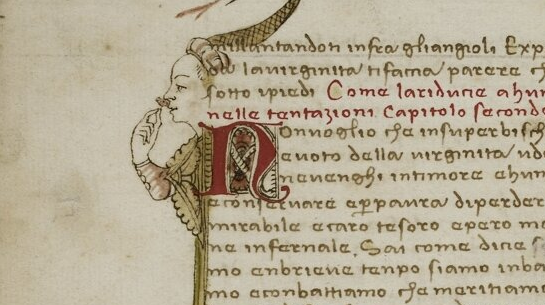 millantandoti infra gliangioli Exp
la uirginita tifacia parere ch
sotto ipiedi Come lariducie ahum
nelle tentazioni Capitolo secondo
Nonuoglio che insuperbisch
euoto della uirginita ud
neuenghi intimore ahum
econseruare epaura diperder
mirabile ecaro tesoro epero m
ne infernale. Sai come dicie s
mo enbrieue tenpo siamo inba
mo econbattiamo che meritiamo